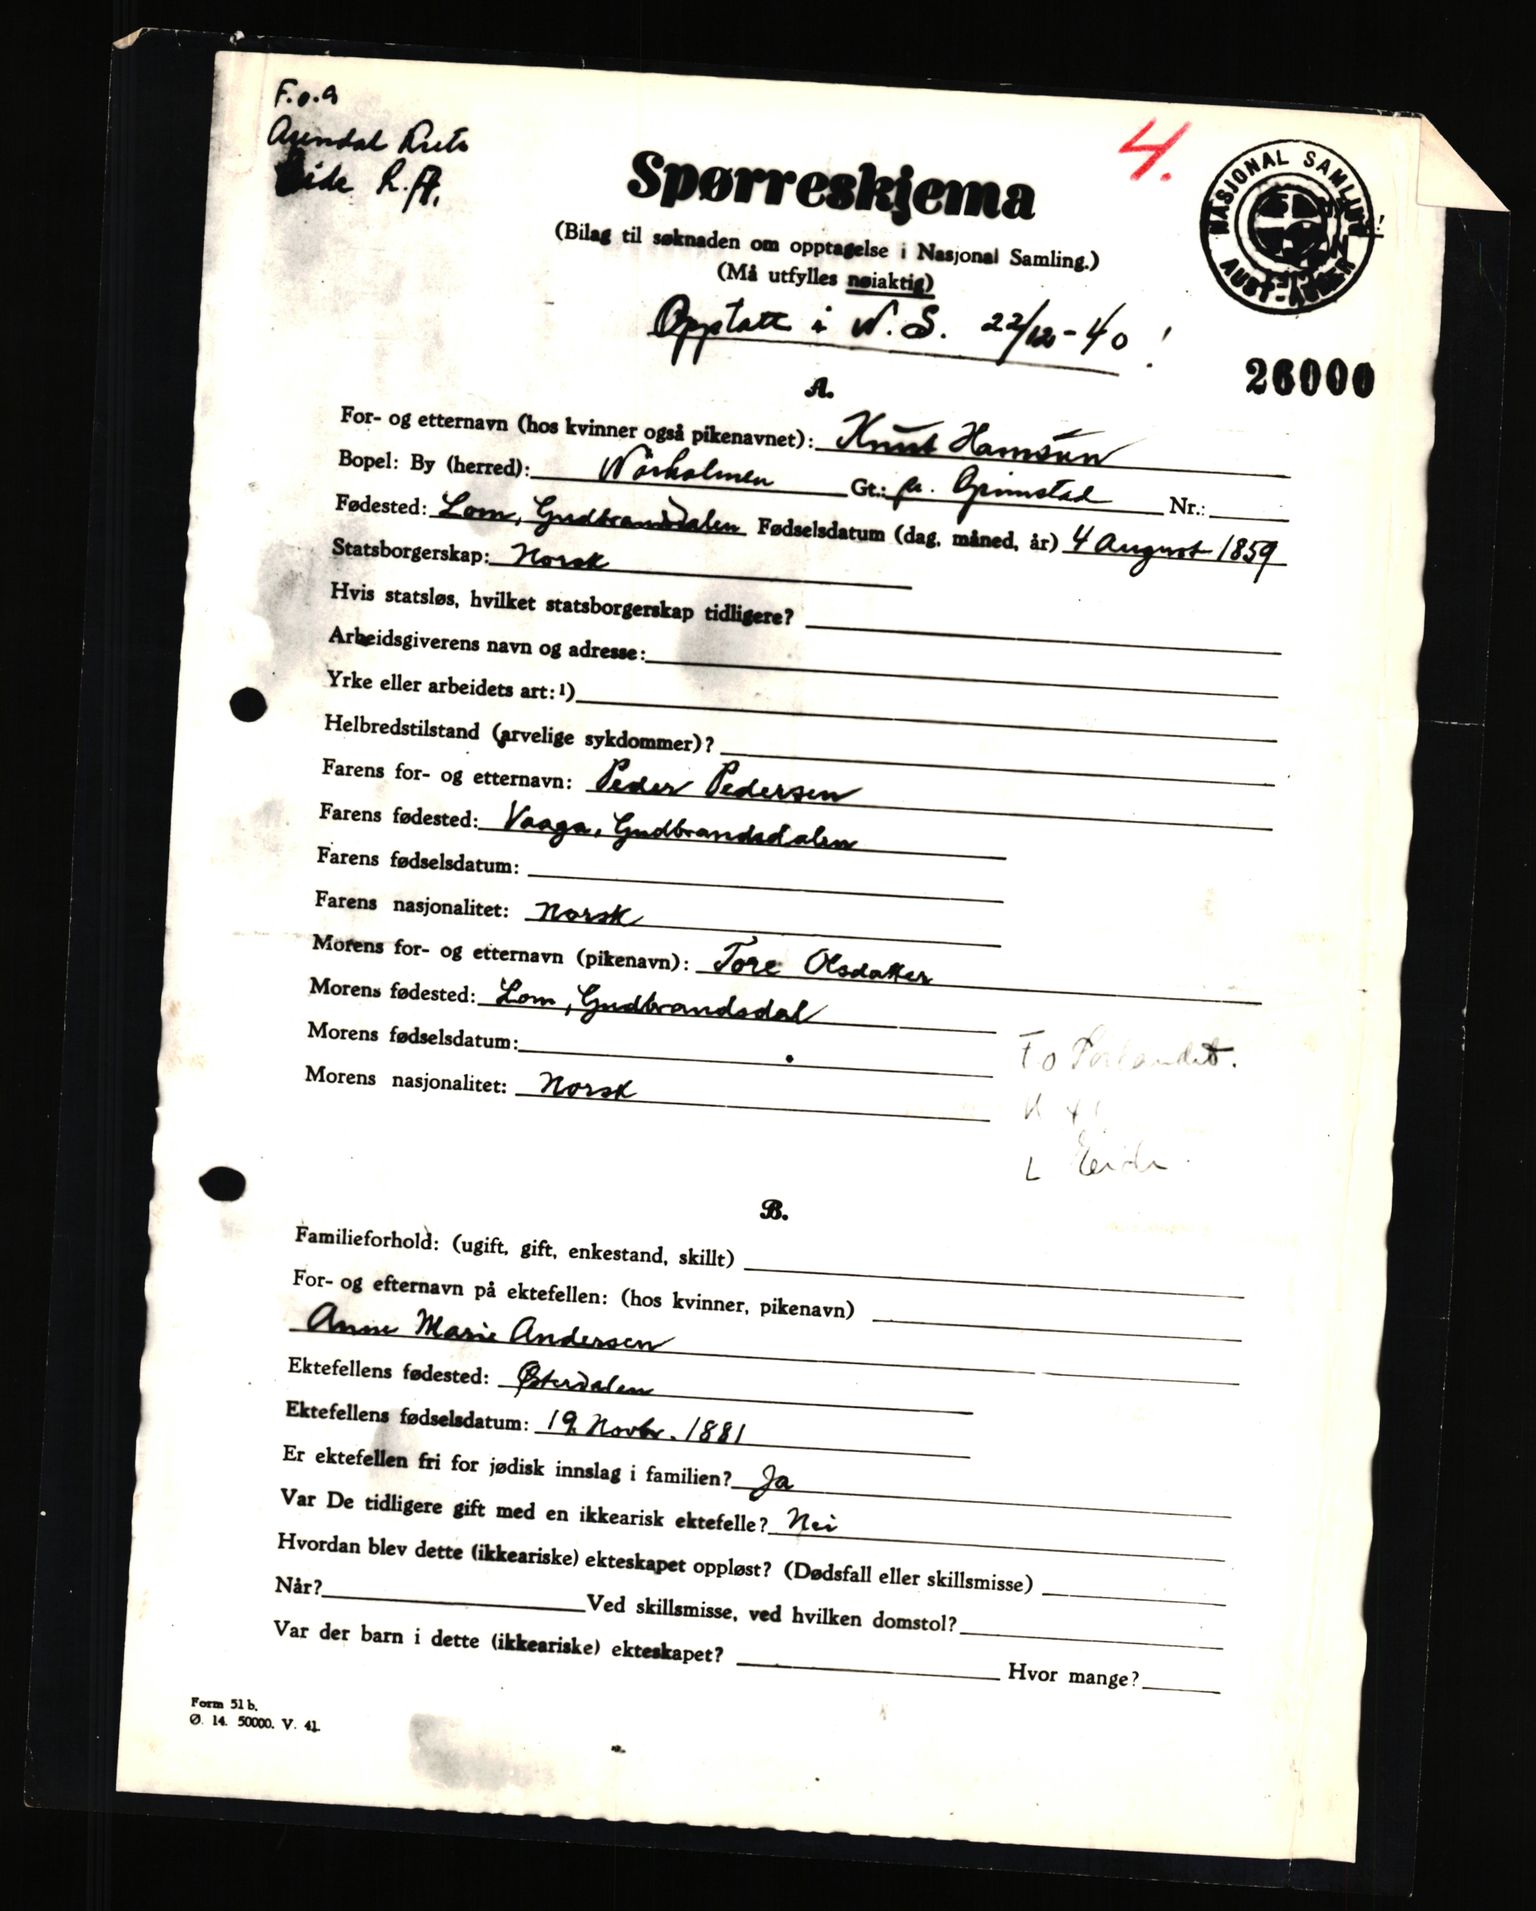 F.o.a
Arendal Krets
Eide L.A.
4.
NASJONAL SAMLING
AUST-AGDER
Spørreskjema
(Bilag til søknaden om opptagelse i Nasjonal Samling.)
(Må utfylles nøiaktig)
Opptatt i N.S. 22/12-40!
26000
A.
For- og etternavn (hos kvinner også pikenavnet): Knut Hamsun
Bopel: By (herred): Nörholmen Gt.: pr. Grimstad Nr.:
Fødested: Lom, Gudbrandsdalen Fødselsdatum (dag, måned, år) 4 August 1859
Statsborgerskap: Norsk
Hvis statsløs, hvilket statsborgerskap tidligere?
Arbeidsgiverens navn og adresse:
Yrke eller arbeidets art: 1)
Helbredstilstand (arvelige sykdommer)?
Farens for- og etternavn: Peder Pedersen
Farens fødested: Vaaga, Gudbrandsdalen
Farens fødselsdatum:
Farens nasjonalitet: Norsk
Morens for- og etternavn (pikenavn): Tore Olsdatter
Morens fødested: Lom, Gudbrandsdal
Morens fødselsdatum:
Morens nasjonalitet: Norsk
L Eide
B.
Familieforhold: (ugift, gift, enkestand, skillt)
For- og efternavn på ektefellen: (hos kvinner, pikenavn)
Anne Marie Andersen
Ektefellens fødested: Østerdalen
Ektefellens fødselsdatum: 19. Novbr. 1881
Er ektefellen fri for jødisk innslag i familien? Ja
Var De tidligere gift med en ikkearisk ektefelle? Nei
Hvordan blev dette (ikkeariske) ekteskapet oppløst? (Dødsfall eller skillsmisse)
Når? Ved skillsmisse, ved hvilken domstol?
Var der barn i dette (ikkeariske) ekteskapet? Hvor mange?
Form 51 b.
Ø. 14. 50000. V. 41.